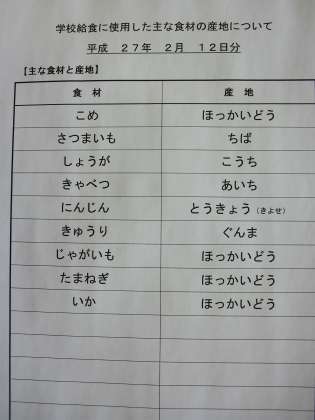 学校給食に使用した主な食材の産地について
平成　２７年　２月　１２日分
【主な食材と産地】
食　材　産　地
こめ　ほっかいどう
さつまいも　ちば
しょうが　こうち
きゃべつ　あいち
にんじん　とうきょう（きよせ）
きゅうり　ぐんま
じゃがいも　ほっかいどう
たまねぎ　ほっかいどう
いか　ほっかいどう